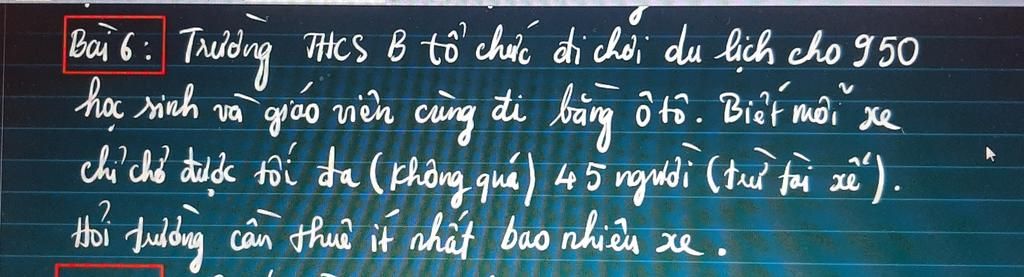 Bài 6: Trường THCS B tổ chức đi chơi du lịch cho 950
học sinh và giáo viên cùng đi bằng ô tô. Biết mỗi xe
chỉ chở được tối đa (không quá) 45 người (trừ tài xế).
Hỏi trường cần thuê ít nhất bao nhiêu xe.